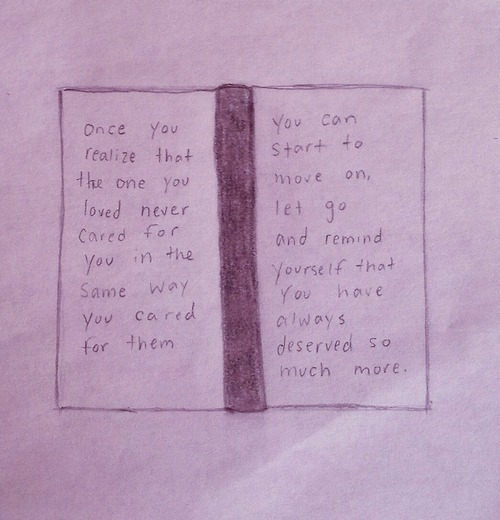 Once you
realize that
the one you
loved never
cared for
you in the
same way
you cared
for them
you can
start to
move on,
let go
and remind
yourself that
you have
always
deserved so
much more.